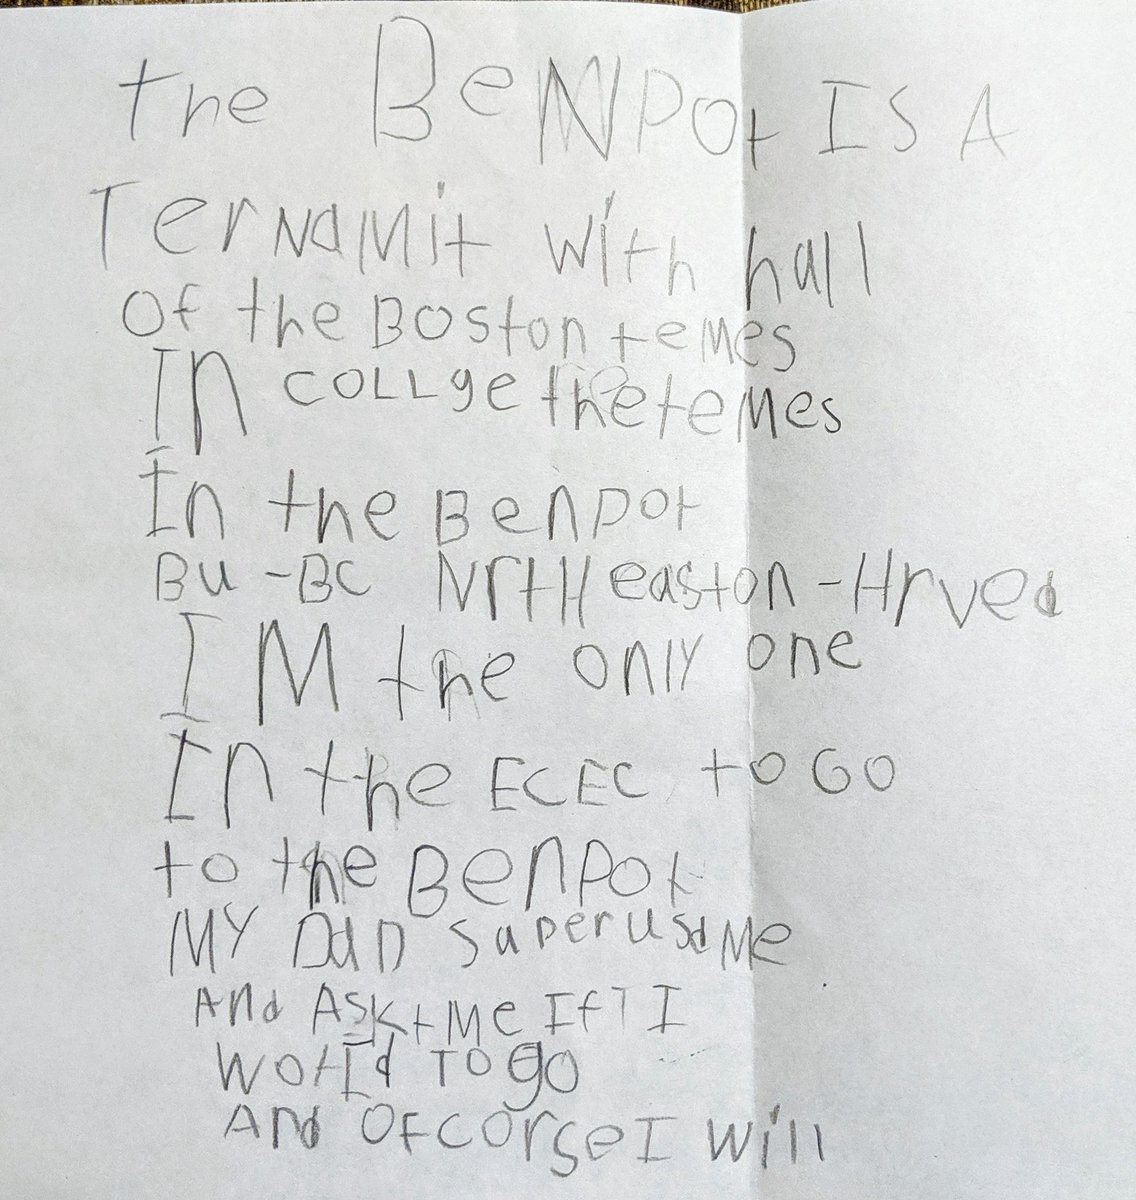 the BeNPOt IS A
TerNaMit With hall
Of the BOston temes
In COLLge the temes
In the Benpot
BU-BC NrtHeaston-Hrved
IM the only one
In the ECEC to GO
to the BenPot
MY DaD SuperusdMe
And ASktMe IfT I
WotId TO gO
And OFcOrse I Will